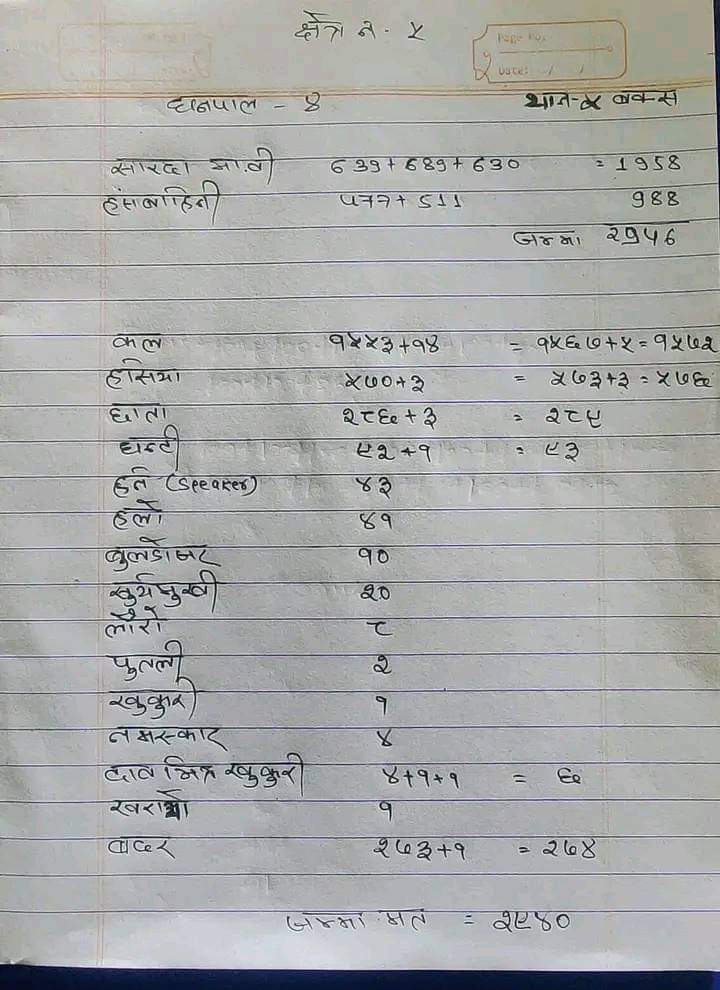 क्षेत्र नं - ५
Page No:
Date: / /
धनपाल - ४ थान-५ बक्स
सारदा मा.वी 639+689+630 = 1958
हंसबाहिनी ५७७+511 988
जम्मा २९५६
कल १५५३+१४ = १५६७+५ = १५७२
हसिया ५७०+३ = ५७३+३ = ५७६
छाता २८६+३ = २८९
घन्टी ९२+१ = ९३
(speaker) ४३
हलो ४१
बुलडोजर १०
सुर्यमुखी २०
लौरो ८
पुतली २
खुकुरी १
नमस्कार ४
दाव भित्र खुकुरी ४+१+१ = ६
खरायो १
बदर २७३+१ = २७४
जम्मा मत = २९४०